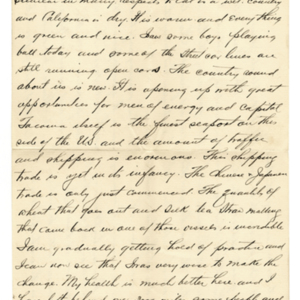 in many respects, as at is a wet country
and California is dry. It is warm and everything
is green and nice. Saw some boys playing
ball today and some of the Street car lines are
still running open cars. The country round
about is new. It is opening up with great
opportunities for men of energy and capital
Tacoma itself is the finest seaport on this
side of the US and the amount of traffic
and shipping is enormous. This shipping
trade is yet in its infancy. The Chinese & Japanese
trade is only just commenced. The quantity of
wheat that goes out and silk tea Straw matting
that came back in one of those vessels is incredible
I am gradually getting hold of practice and
I can now see that I was very wise to make the
change. My health is much better here, and I